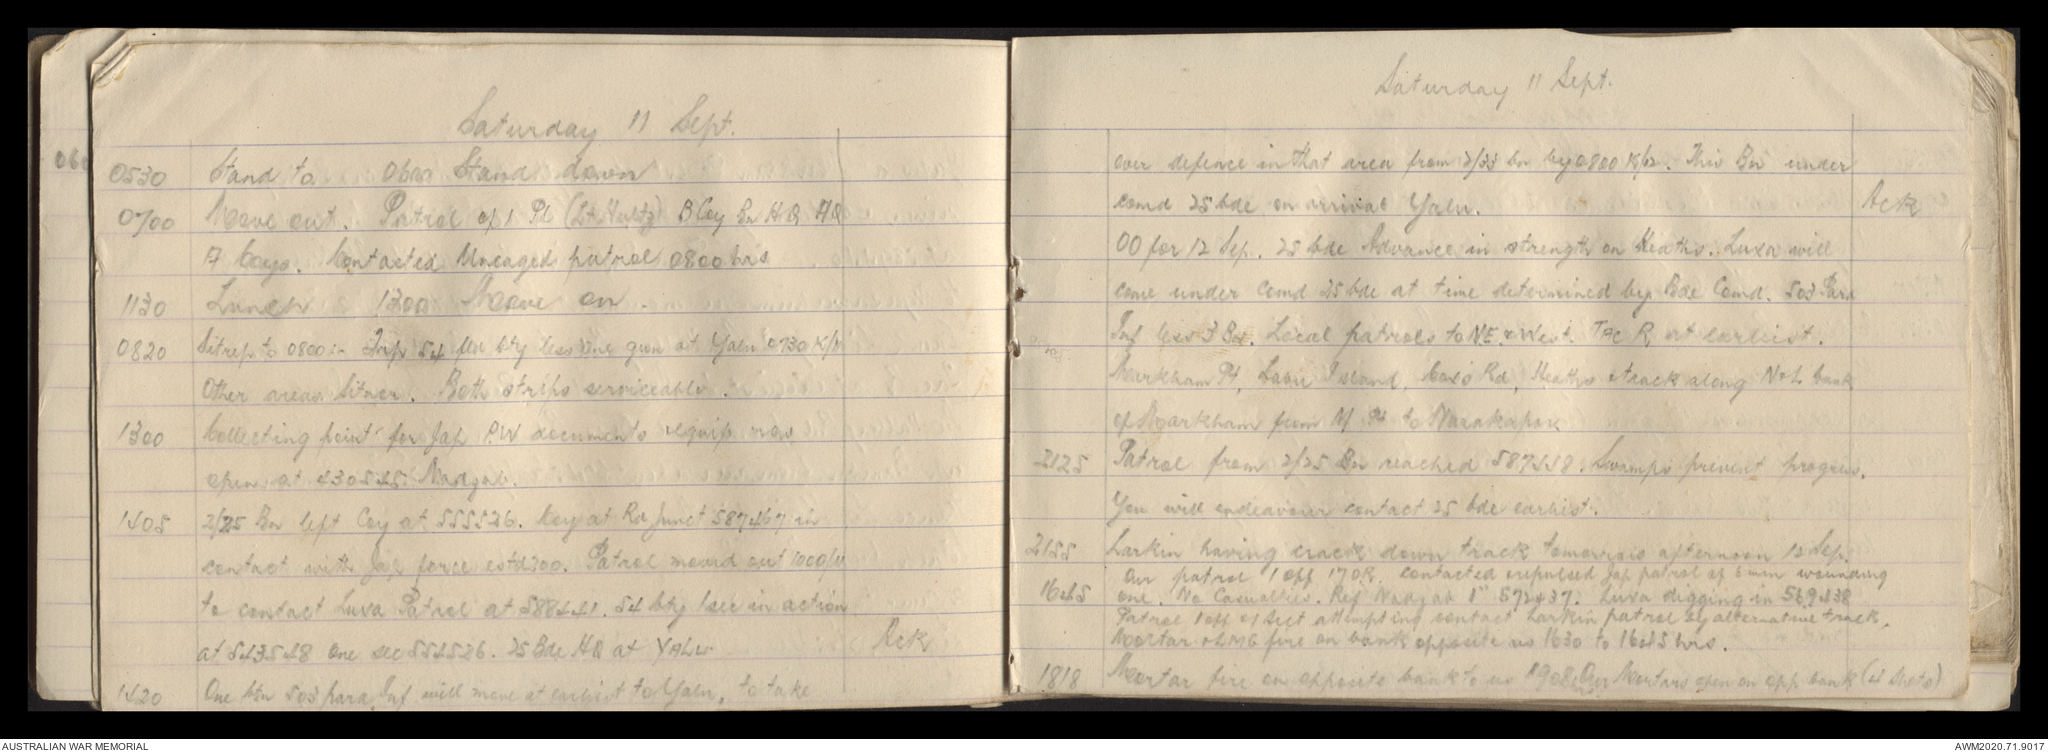 Saturday 11 Sept.
0530 Stand to 0600 Stand down
0700 Move out. Patrol of 1 Pl (Lt. Hultz) B Coy Bn HQ HQ
A Coys. Contacted Uncaged patrol 0800 hrs
1130 Lunch 1300 Move on.
0820 Sitrep to 0800 54 fld bty less one gun at Yalu 0730 K/11
Other areas Sitnor. Both strips serviceable.
1300 Collecting point for Jap P.W documents equip now
open at 430545 Nadzab.
1405 2/25 Bn left Coy at 555526. Coy at Rd Junct 587467 in
contact with Jap force estd 200. Patrol moved out 1000/11
to contact Luxa Patrol at 588441. 54 bty 1 sec in action
at 543548 One sec 554526. 25 Bde HQ at YALU. Ack
1420 One btn 503 para Inf will move at earliest to Yalu, to take
Saturday 11 Sept.
over defence in that area from 2/33 bn by 0800 K/12. This Bn under
comd 25 bde on arrival Yalu. Ack
OO for 12 Sep. 25 bde Advance in strength on Heaths. Luxa will
come under Comd 25 bde at time determined by Bde Comd. 503 Para
Inf less 3 Bn. Local patrols to NE & West. TAC R at earliest.
Markham Pt, Labu Island, Rd, Heaths & track along Nth bank
of Markham from M Pt to Narakapor.
2125 Patrol from 2/25 Bn reached 587448. Swamps prevent progress.
You will endeavour contact 25 bde earliest.
2155 Larkin having crack down track tomorrow afternoon 12 Sep.
1645 Our patrol 1 off 17 OR. contacted & repulsed Jap patrol of 6 men wounding
one. No Casualties. Ref Nadzab 1" 572437. Luxa digging in 569438
Patrol 1 off & Sect attempting contact Larkin patrol by alternative track.
Mortar & LMG fire on bank opposite us 1630 to 1645 hrs.
1818 Mortar fire on opposite bank to us 1908 Our Mortars open on opp bank (4 Shots)
AUSTRALIAN WAR MEMORIAL
AWM2020.71.9017